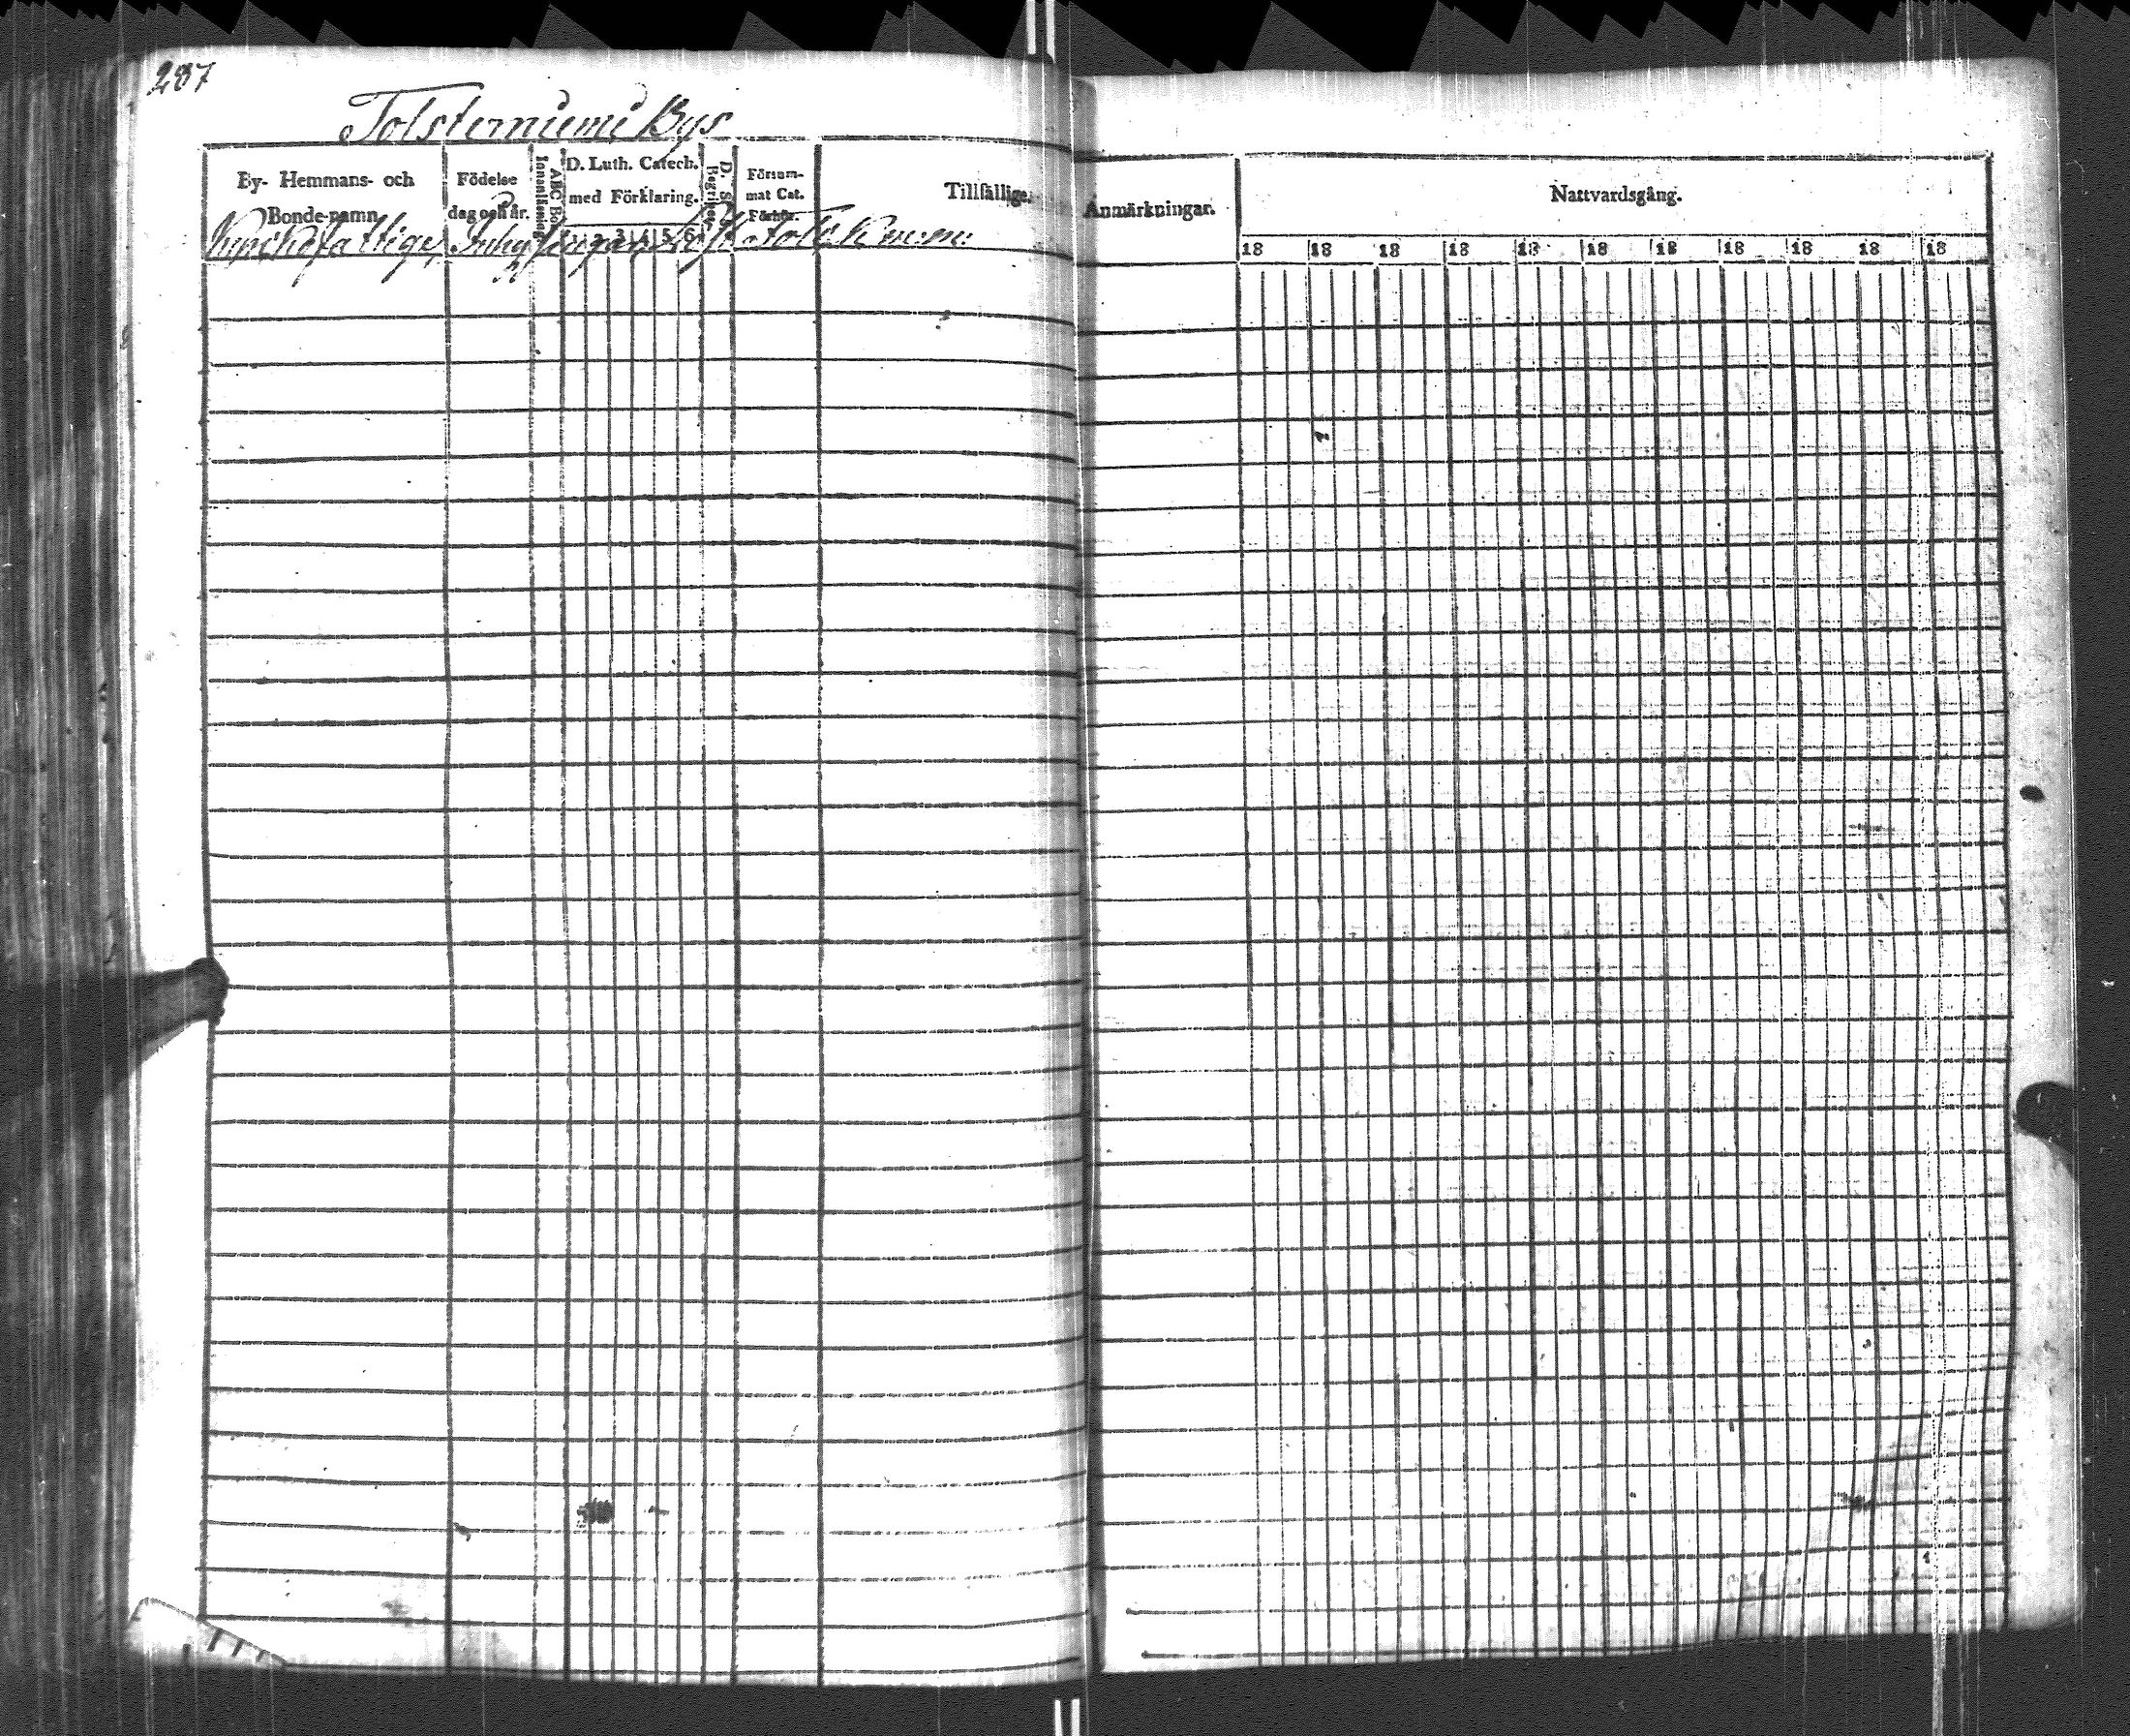 287
Tolsterniemi Bys
By- Hemmans- och
Bonde-namn
Födelse
dag och år.
Innanläsning
ABC Bo
D. Luth. Catech.
med Förklaring.
3 4 5 6
D. S.
Begriper
Försum-
mat Cat.
Förhör.
Tillfällige
Anmärkningar.
Nattvardsgång.
fattige, Inhysingar
18 18 18 18 18 18 18 18 18 18 18